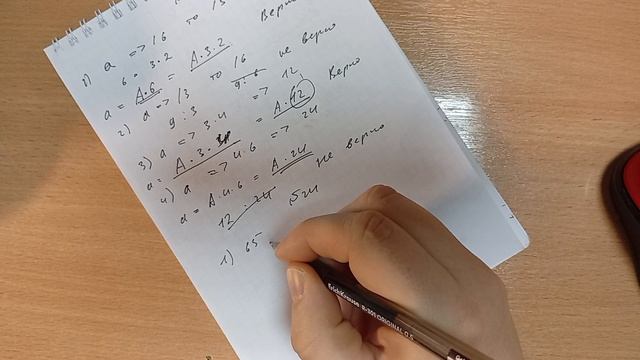 1) a => 16 то 13 верно
6 = 3.2
a = A.6 = A.3.2
2) a => 13 то 16 не верно
9:3 9:6
3) a => 3.4 => 12 Верно
a = A.3. = A.12
4) a => 4.6 => 24 не верно
a = A.4.6 = A.24
12 . 24 524
1) 65
ErichKrause R-301 ORIGINAL 0.5